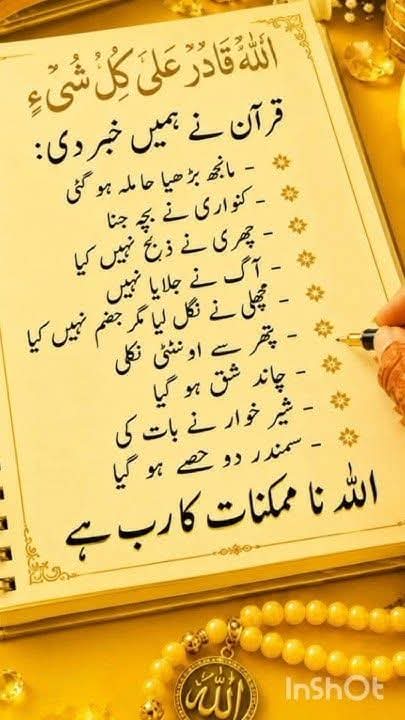 اللہُ قَادرٌ عَلیٰ کِلُ شُیءٍ
قرآن نے ہمیں خبر دی:
- بانجھ بڑھیا حاملہ ہو گئی
- کنواری نے بچہ جنا
- چھری نے ذبح نہیں کیا
- آگ نے جلایا نہیں
- مچھلی نے نگل لیا مگر ہضم نہیں کیا
- پتھر سے اونٹنی نکلی
- چاند شق ہو گیا
- شیر خوار نے بات کی
- سمندر دو حصے ہو گیا
اللہ نا ممکنات کا رب ہے
اللہ
InShOt